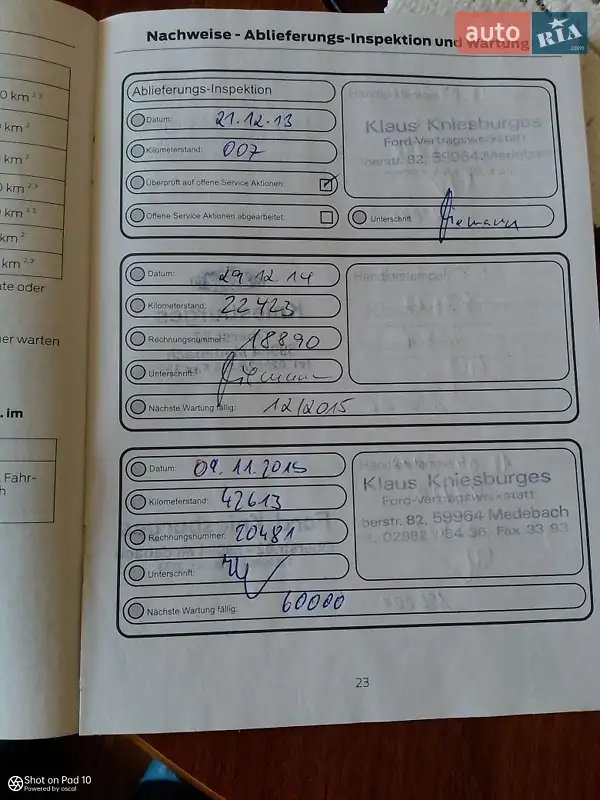 auto RIA .com
Nachweise - Ablieferungs-Inspektion und Wartung
0 km 2,3
km 2
km 2
0 km 2,3
km 2 3
km 2
km 2,3
te oder
er warten
. im
Fahr-
h
Ablieferungs-Inspektion
Datum: 21.12.13
Kilometerstand: 007
Überprüft auf offene Service Aktionen:
Offene Service Aktionen abgearbeitet:
Klaus Kniesburges
Ford-Vertragswerkstatt
berstr. 82, 59964 Medebach
Unterschrift
Datum: 29.12.14
Kilometerstand: 22423
Rechnungsnummer: 18890
Unterschrift:
Nächste Wartung fällig: 12/2015
Händlerstempel
Datum: 09.11.2015
Kilometerstand: 42613
Rechnungsnummer: 20481
Unterschrift:
Nächste Wartung fällig: 60000
Klaus Kniesburges
Ford-Vertragswerkstatt
berstr. 82, 59964 Medebach
Fax 33 93
23
Shot on Pad 10
Powered by oscal